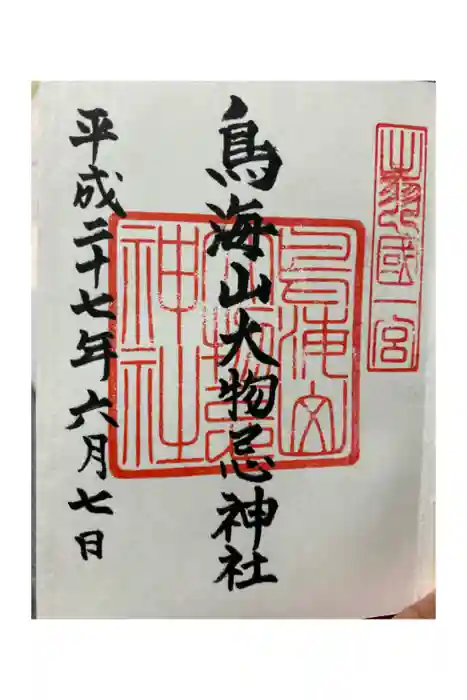 出羽國一宮
鳥海山大物忌神社
鳥海山
大物忌
神社
平成二十七年六月七日